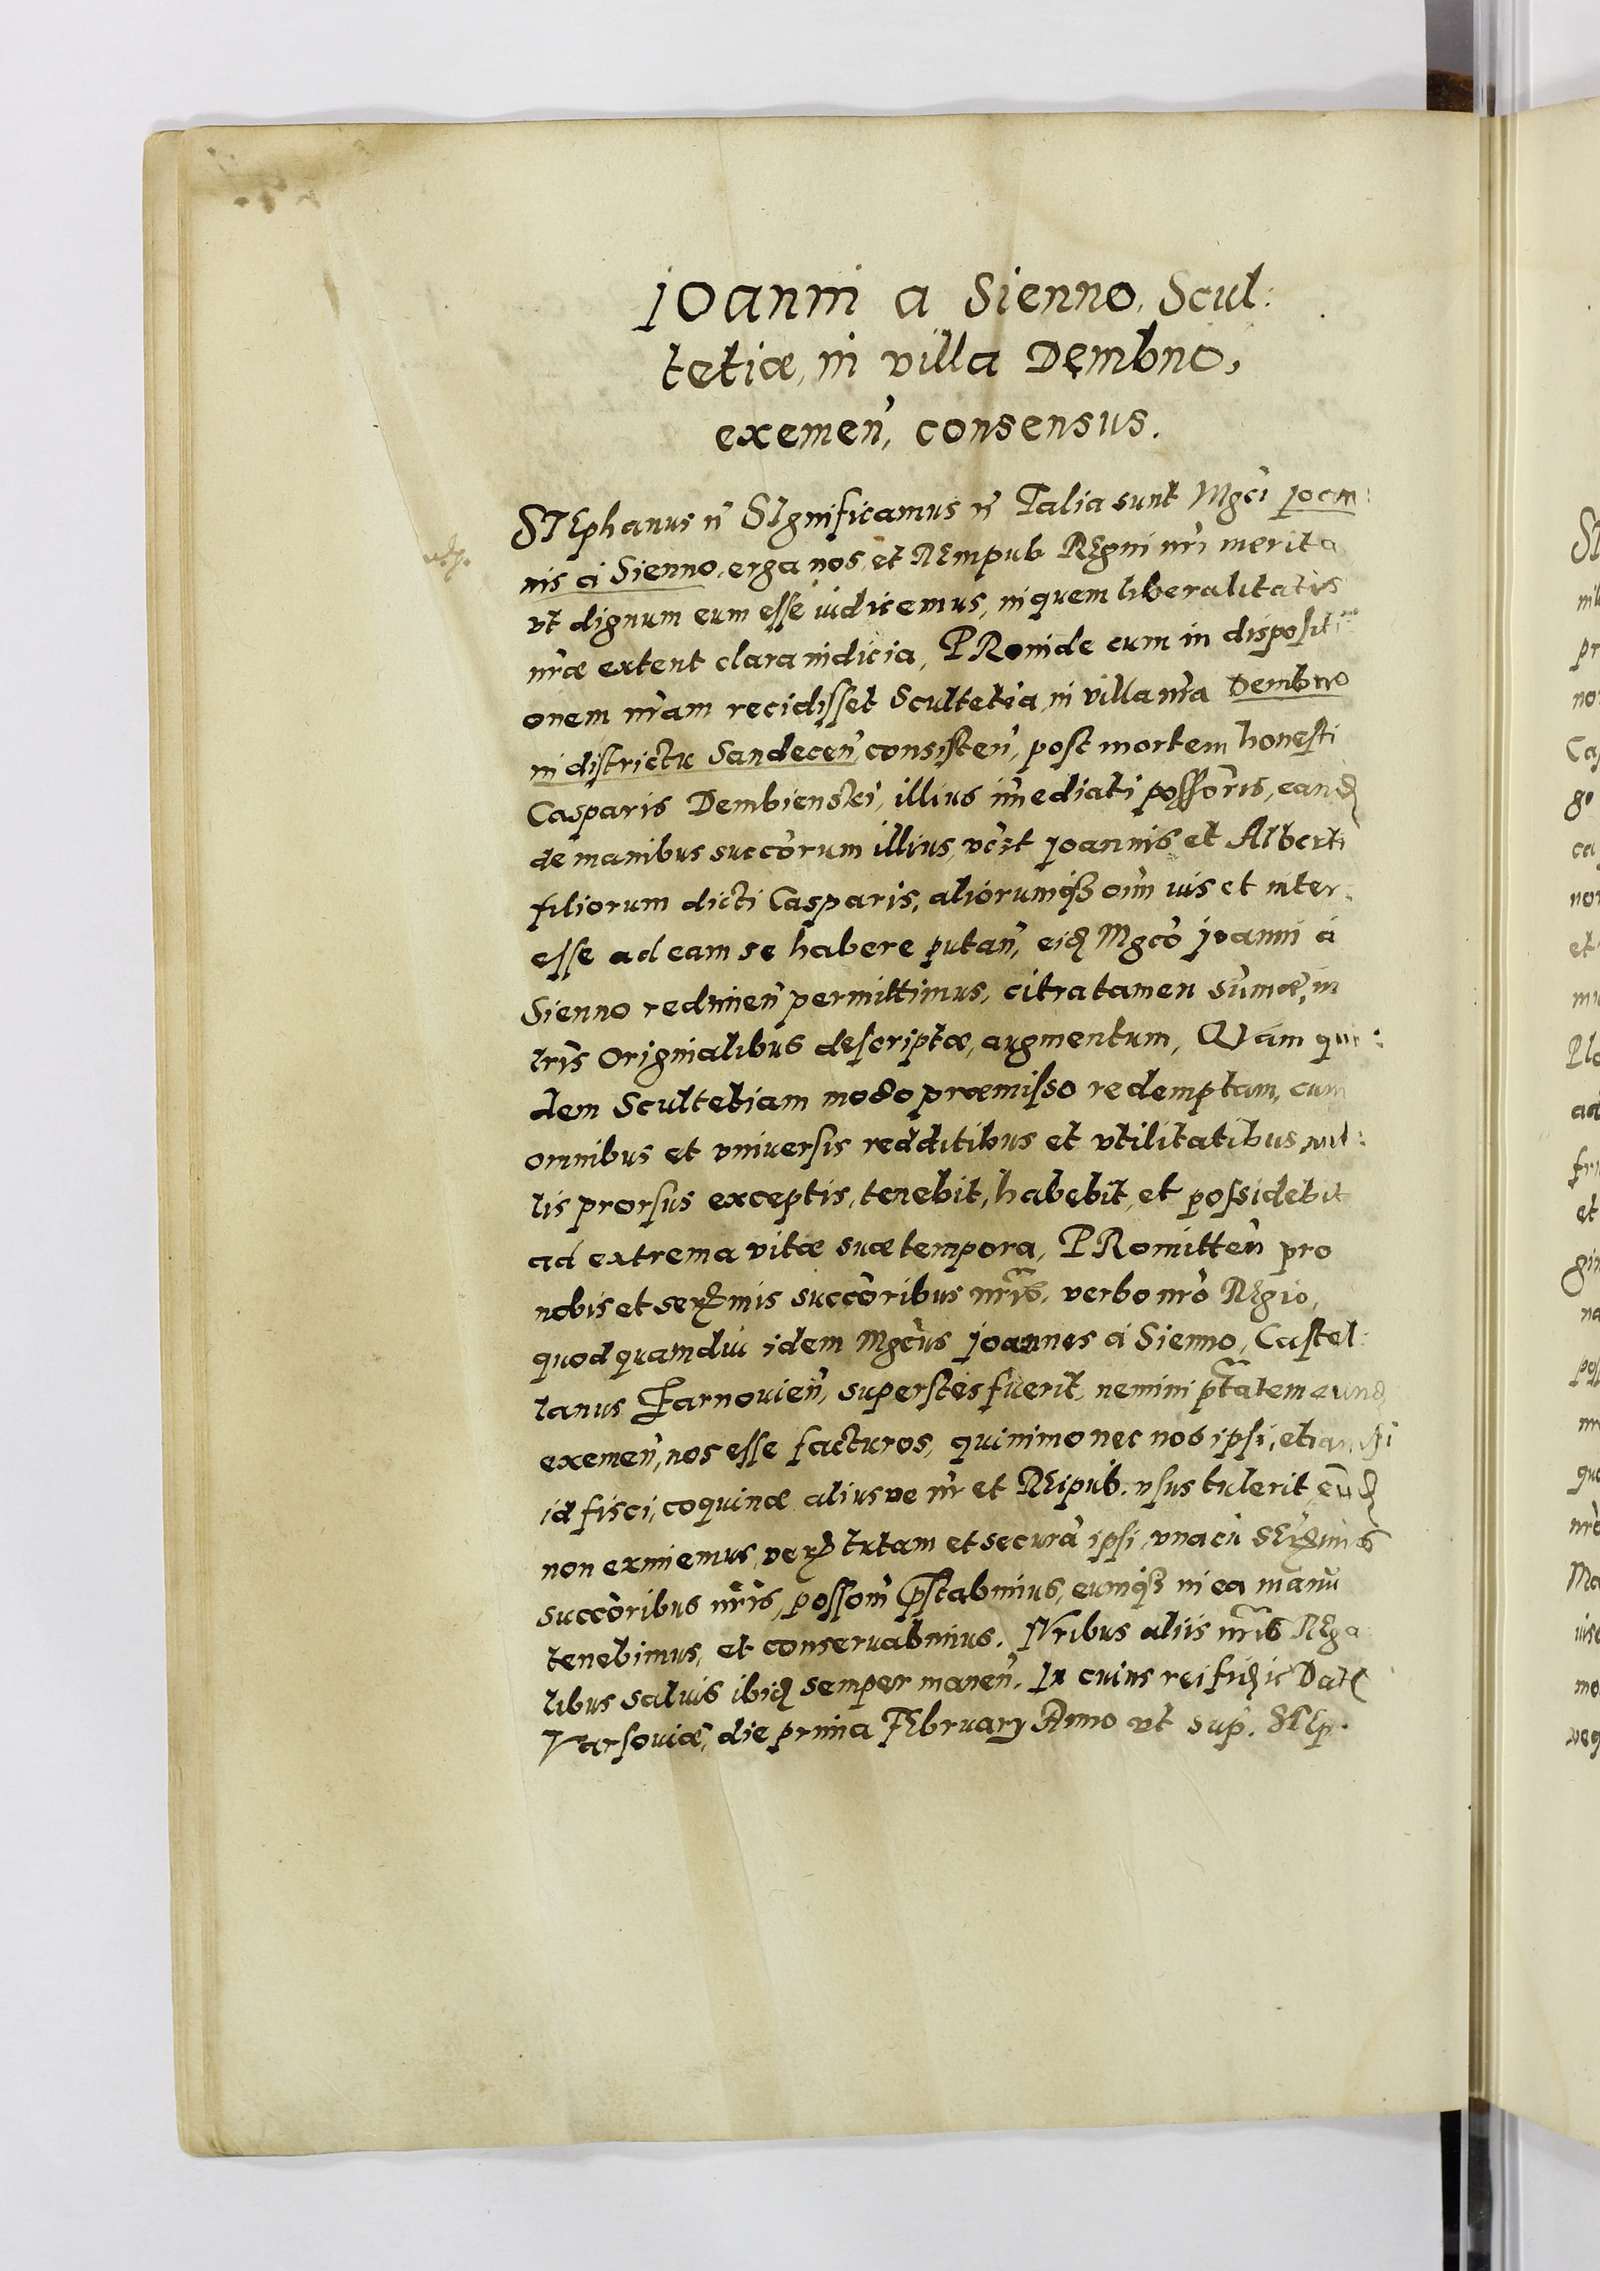 JOanni a Sienno, Scul:
tetiæ, in villa Dębno,
exemen̄, consensus.
STEphanus n̄ SIgnificamus n̄ Talia sunt Mgci Joan:
nis à Sienno, erga nos, et REmpub REgni nr̄i merita
vt dignum eum esse iudicemus, in quem liberalitatis
nr̄æ extent clara indicia, PRoinde cum in dispositi
onem nr̄am recidisset Scultetia, in villa nr̄a Dembno
in districtu Sandecen̄, consisten̄, post mortem honesti
Casparis Dembienski, illius im̄ediati possoris, eandꝫ
de manibus succorum illius, vc̄zt Joannis et Alberti
filiorum dicti Casparis, aliorumqꝫ oīm ius et inter:
esse ad eam se habere putan̄, eidꝫ Mgco Joanni à
Sienno redimen̄ permittimus, citra tamen sum̄æ, in
lr̄is Originalibus descriptæ, augmentum, QVam qui:
dem Scultetiam modo præmisso redemptam, cum
omnibus et vniuersis redditibus et vtilitatibus, nul:
lis prorsus exceptis, tenebit, habebit, et possidebit
ad extrema vitæ suæ tempora, PRomitten̄ pro
nobis et serꝫmis succoribus nr̄is, verbo nr̄o REgio,
quod quamdiu idem Mgcus Joannes à Sienno, Castel:
lanus Zarnouien̄, superstes fuerit, nemini ptatem eundꝫ
exemen̄, nos esse facturos, quinimo nec nos ipsi, etiamsi
id fisci, coquinæ aliusve nr̄ et REipub. vsus tulerit eūdꝫ
non eximemus, verꝫ tutam et securā ipsi, vna cū SErꝫmis
succoribus nr̄is, possom̄ p̄stabimus, eumqꝫ in ea manu
tenebimus, et conseruabimus. IVribus aliis nr̄is REga
libus saluis ibidꝫ semper manen̄. In cuius rei fidꝫ ic Datꝫ
Varsouiæ, die prima FEbruarÿ Anno vt sup. STEp.